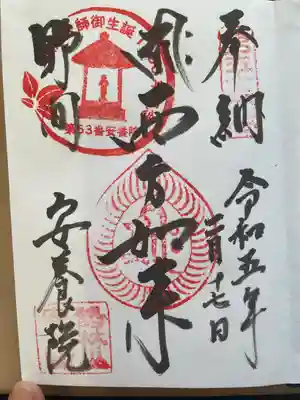 奉納
令和五年
二月十七日
西方如来
野間
安養院
師御生誕
第53番安養院